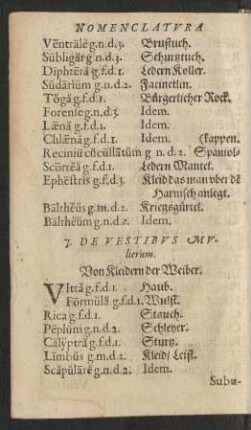 NOMENCLATVRA
Vēntrālĕ g.n.d.3. Brusttuch.
Sūbligār g.n.d.3. Schurtztuch.
Diphtĕrā g.f.d.1. Ledern Koller.
Sūdārĭum g.n.d.2. Facinetlin.
Tŏgă g.f.d.1. Bürgerlicher Rock.
Forense g.n.d.3. Idem.
Læna g.f.d.1. Idem.
Chlæna g.f.d.1. Idem. (kappen.
Reciniū cŭcūllātum g n.d.2. Spaniol-
Scōrtĕă g.f.d.1. Ledern Mantel.
Ephēstris g.f.d.3. Kleid das man vber dē
Harnisch anlegt.
Bālthĕŭs g.m.d.2. Kriegsgürtel.
Bālthĕŭm g.n.d.2. Idem.
7. DE VESTIBVS MV-
lierum.
Von Kleidern der Weiber.
VIttă g.f.d.1. Haub.
Fōrmŭlă g.f.d.1. Wulst.
Rica g.f.d.1. Stauch.
Pēplum g.n.d.2. Schleyer.
Calyptră g.f.d.1. Sturtz.
Līmbŭs g.m.d.2. Kleid/ Leist.
Scăpŭlārĕ g.n.d.2. Idem.
Subu-